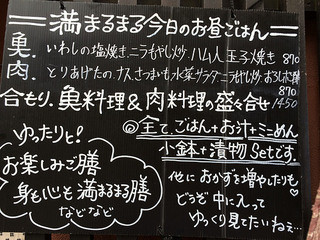 満まるまる今日のお昼ごはん
魚. いわしの塩焼き.ニラもやし炒.ハム入玉子焼き 870
肉. とりあげたの.ナス.さつまいも水菜サラダ.ニラもやし炒.おろしポン酢 870
合もり.魚料理&肉料理の盛合せ 1450
◎全て、ごはん+お汁+ミニめん
小鉢+漬物Setです。
ゆったりと!
お楽しみご膳
身も心も満まるまる膳
などなど
他におかずを増やしたりも♡
どうぞ中に入って
ゆっくり見てたいねぇ…